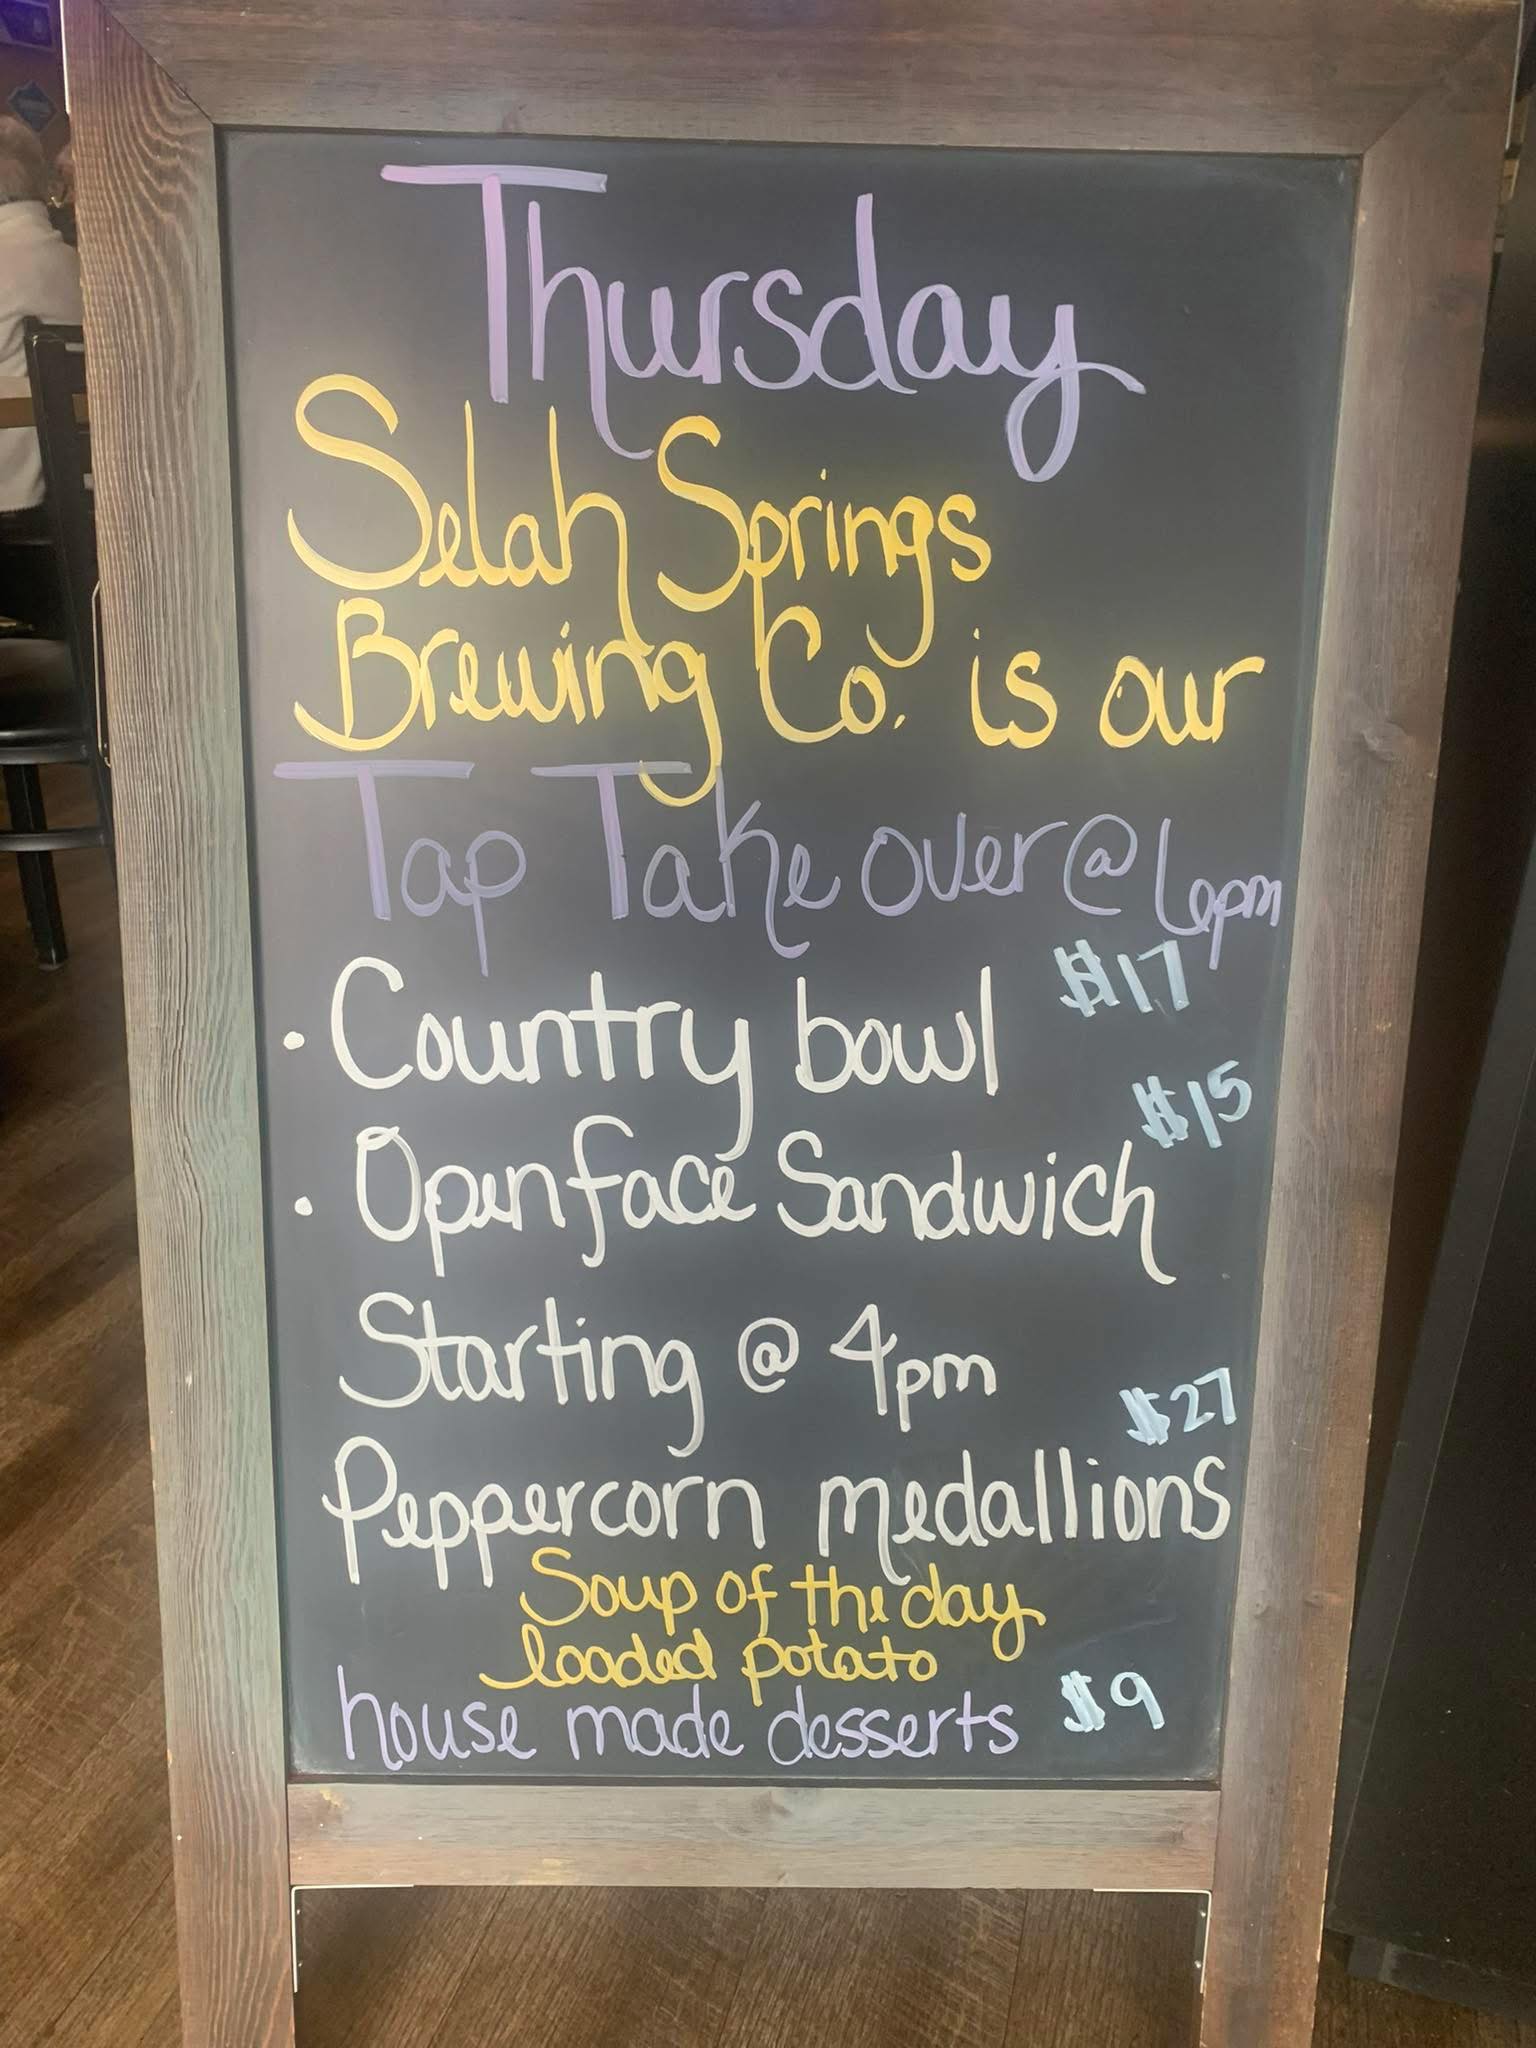 Thursday
Selah Springs
Brewing Co. is our
Tap Take over @ 6pm
• Country bowl $17
• Openface Sandwich $15
Starting @ 4pm
Peppercorn medallions $27
Soup of the day
loaded potato
house made desserts $9